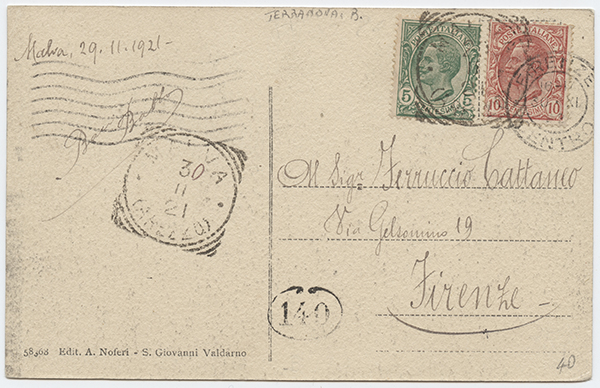 TERRANOVA B.
Malva, 29.11.1921-
POSTE ITALIANE
5 5
POSTE ITALIANE
10 10
FIRENZE
CENTRO
MALVA
30
11
21
(AREZZO)
Al Sigr Ferruccio Cattaneo
Via Gelsomino 19
Firenze
140
58508 Edit. A. Noferi - S. Giovanni Valdarno
40